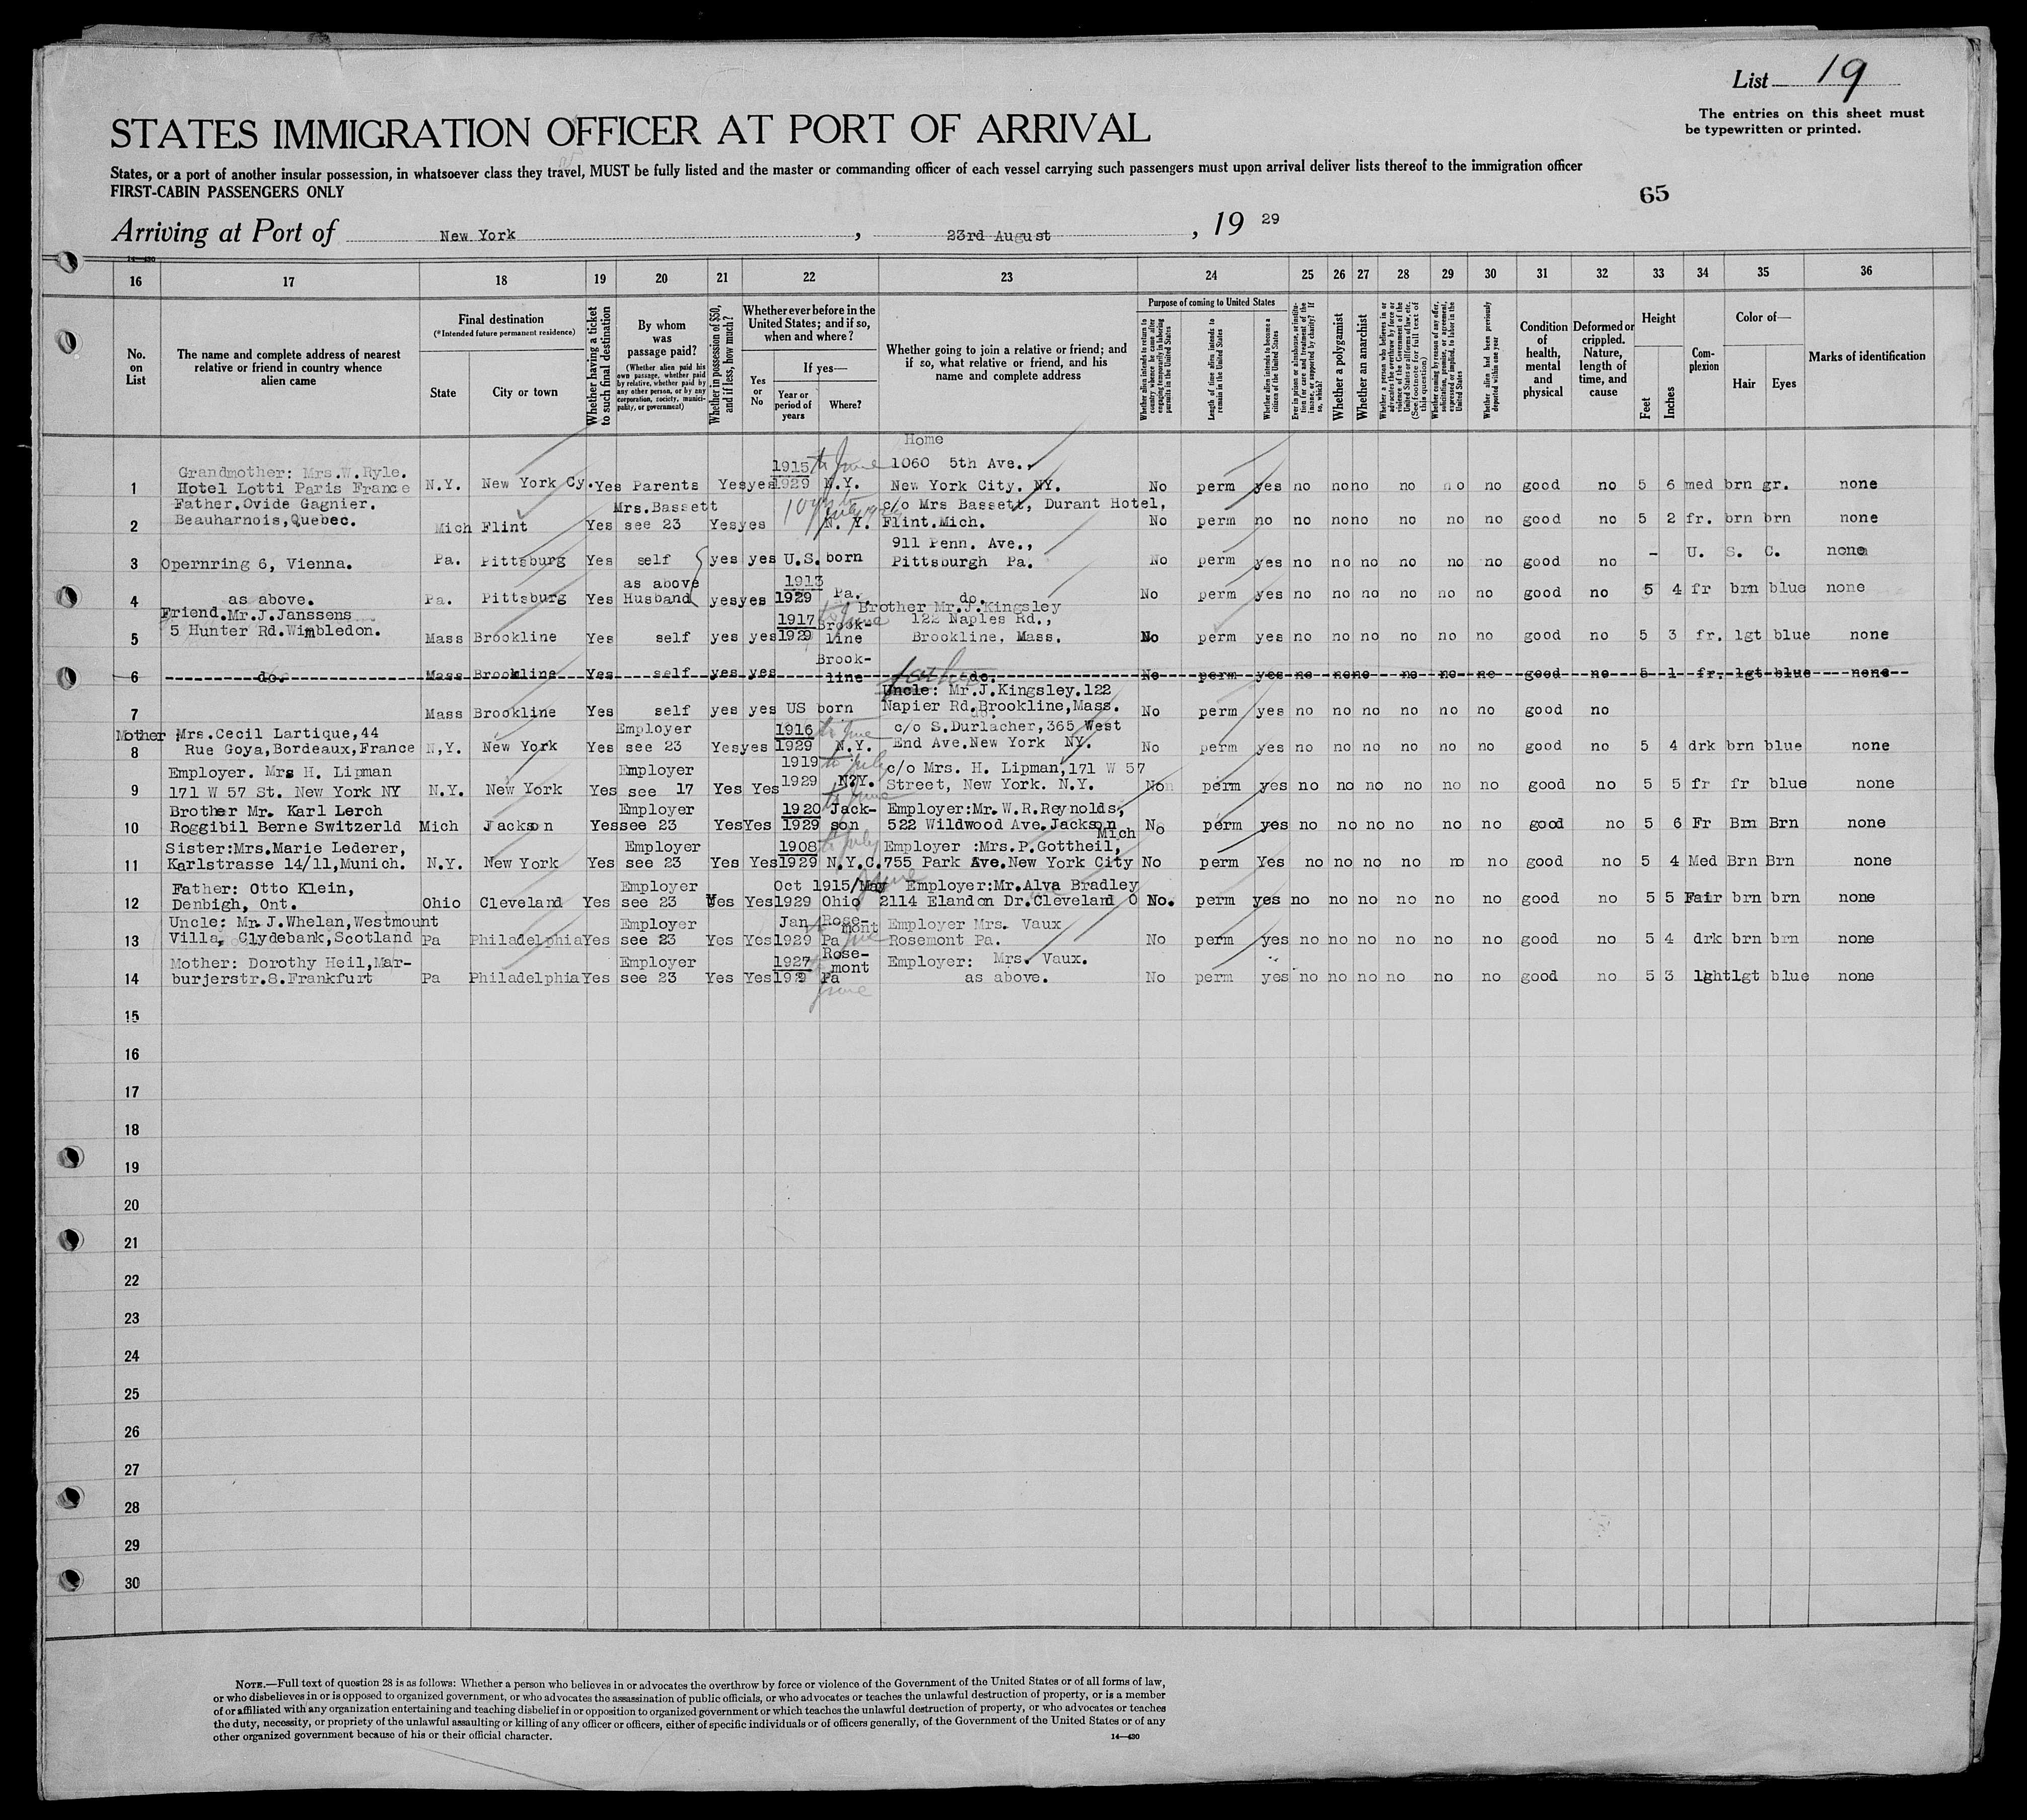 List 19
The entries on this sheet must
be typewritten or printed.
STATES IMMIGRATION OFFICER AT PORT OF ARRIVAL
States, or a port of another insular possession, in whatsoever class they travel, MUST be fully listed and the master or commanding officer of each vessel carrying such passengers must upon arrival deliver lists thereof to the immigration officer
FIRST-CABIN PASSENGERS ONLY
65
Arriving at Port of New York, 23rd August, 19 29
14—430
16 17 18 19 20 21 22 23 24 25 26 27 28 29 30 31 32 33 34 35 36
No. on List
The name and complete address of nearest relative or friend in country whence alien came
Final destination
(*Intended future permanent residence)
State
City or town
Whether having a ticket to such final destination
By whom was passage paid?
(Whether alien paid his own passage, whether paid by relative, whether paid by any other person, or by any corporation, society, municipality, or government)
Whether in possession of $50, and if less, how much?
Whether ever before in the United States; and if so, when and where?
Yes or No
If yes—
Year or period of years
Where?
Whether going to join a relative or friend; and if so, what relative or friend, and his name and complete address
Purpose of coming to United States
Whether alien intends to return to country whence he came after engaging temporarily in laboring pursuits in the United States
Length of time alien intends to remain in the United States
Whether alien intends to become a citizen of the United States
Ever in prison or almshouse, or institution for care and treatment of the insane, or supported by charity? If so, which?
Whether a polygamist
Whether an anarchist
Whether a person who believes in or advocates the overthrow by force or violence of the Government of the United States or all forms of law, etc. (See footnote for full text of this question)
Whether coming by reason of any offer, solicitation, promise, or agreement, expressed or implied, to labor in the United States
Whether alien had been previously deported within one year
Condition of health, mental and physical
Deformed or crippled. Nature, length of time, and cause
Height
Feet
Inches
Complexion
Color of—
Hair
Eyes
Marks of identification
Home
Grandmother: Mrs.W.Ryle. 1915 to June 1060 5th Ave.,
1 Hotel Lotti Paris France N.Y. New York Cy. Yes Parents Yes yes 1929 N.Y. New York City. NY. No perm yes no no no no no no good no 5 6 med brn gr. none
Father.Ovide Gagnier. Mrs.Bassett c/o Mrs Bassett, Durant Hotel,
2 Beauharnois,Quebec. Mich Flint Yes see 23 Yes yes N.Y. Flint.Mich. No perm no no no no no no no good no 5 2 fr. brn brn none
911 Penn. Ave.,
3 Opernring 6, Vienna. Pa. Pittsburg Yes self yes yes U.S. born Pittsburgh Pa. No perm yes no no no no no no good no - U. S. C. none
as above 1913
4 as above. Pa. Pittsburg Yes Husband yes yes 1929 Pa. do. No perm yes no no no no no no good no 5 4 fr brn blue none
Friend.Mr.J.Janssens 1917 to June Brother Mr.J.Kingsley
5 Hunter Rd.Wimbledon. Brook- 122 Naples Rd.,
5 Mass Brookline Yes self yes yes 1929 line Brookline, Mass. No perm yes no no no no no no good no 5 3 fr. lgt blue none
Brook- father
6 do. Mass Brookline Yes self yes yes line do. No perm yes no no no no no no good no 5 1 fr. lgt blue none
Uncle: Mr.J.Kingsley.122
7 Mass Brookline Yes self yes yes US born Napier Rd.Brookline,Mass. No perm yes no no no no no no good no
Mother Mrs.Cecil Lartique,44 Employer 1916 to June c/o S.Durlacher,365 West
8 Rue Goya,Bordeaux,France N,Y. New York Yes see 23 Yes yes 1929 N.Y. End Ave.New York NY. No perm yes no no no no no no good no 5 4 drk brn blue none
Employer. Mrs H. Lipman Employer 1919 to July c/o Mrs. H. Lipman,171 W 57
9 171 W 57 St. New York NY N.Y. New York Yes see 17 Yes Yes 1929 N.Y. Street, New York. N.Y. No perm yes no no no no no no good no 5 5 fr fr blue none
Brother Mr. Karl Lerch Employer 1920 to June Jack- Employer:Mr.W.R.Reynolds,
10 Roggibil Berne Switzerld Mich Jackson Yes see 23 Yes Yes 1929 son 522 Wildwood Ave.Jackson Mich No perm yes no no no no no no good no 5 6 Fr Brn Brn none
Sister:Mrs.Marie Lederer, Employer 1908 to July Employer :Mrs.P.Gottheil,
11 Karlstrasse 14/11,Munich. N.Y. New York Yes see 23 Yes Yes 1929 N.Y.C. 755 Park Ave.New York City No perm Yes no no no no no no good no 5 4 Med Brn Brn none
Father: Otto Klein, Employer Oct 1915/May June Employer:Mr.Alva Bradley
12 Denbigh, Ont. Ohio Cleveland Yes see 23 Yes Yes 1929 Ohio 2114 Elandon Dr.Cleveland O No. perm yes no no no no no no good no 5 5 Fair brn brn none
Uncle: Mr.J.Whelan,Westmount Employer Jan Rose-mont Employer Mrs. Vaux
13 Villa, Clydebank,Scotland Pa Philadelphia Yes see 23 Yes Yes 1929 Pa Rosemont Pa. No perm yes no no no no no no good no 5 4 drk brn brn none
Mother: Dorothy Heil,Mar- Employer 1927 Rose-mont Employer: Mrs. Vaux.
14 burjerstr.8.Frankfurt Pa Philadelphia Yes see 23 Yes Yes 1929 Pa as above. No perm yes no no no no no no good no 5 3 lght lgt blue none
June
15
16
17
18
19
20
21
22
23
24
25
26
27
28
29
30
NOTE.—Full text of question 28 is as follows: Whether a person who believes in or advocates the overthrow by force or violence of the Government of the United States or of all forms of law,
or who disbelieves in or is opposed to organized government, or who advocates the assassination of public officials, or who advocates or teaches the unlawful destruction of property, or is a member
of or affiliated with any organization entertaining and teaching disbelief in or opposition to organized government or which teaches the unlawful destruction of property, or who advocates or teaches
the duty, necessity, or propriety of the unlawful assaulting or killing of any officer or officers, either of specific individuals or of officers generally, of the Government of the United States or of any
other organized government because of his or their official character.
14—430